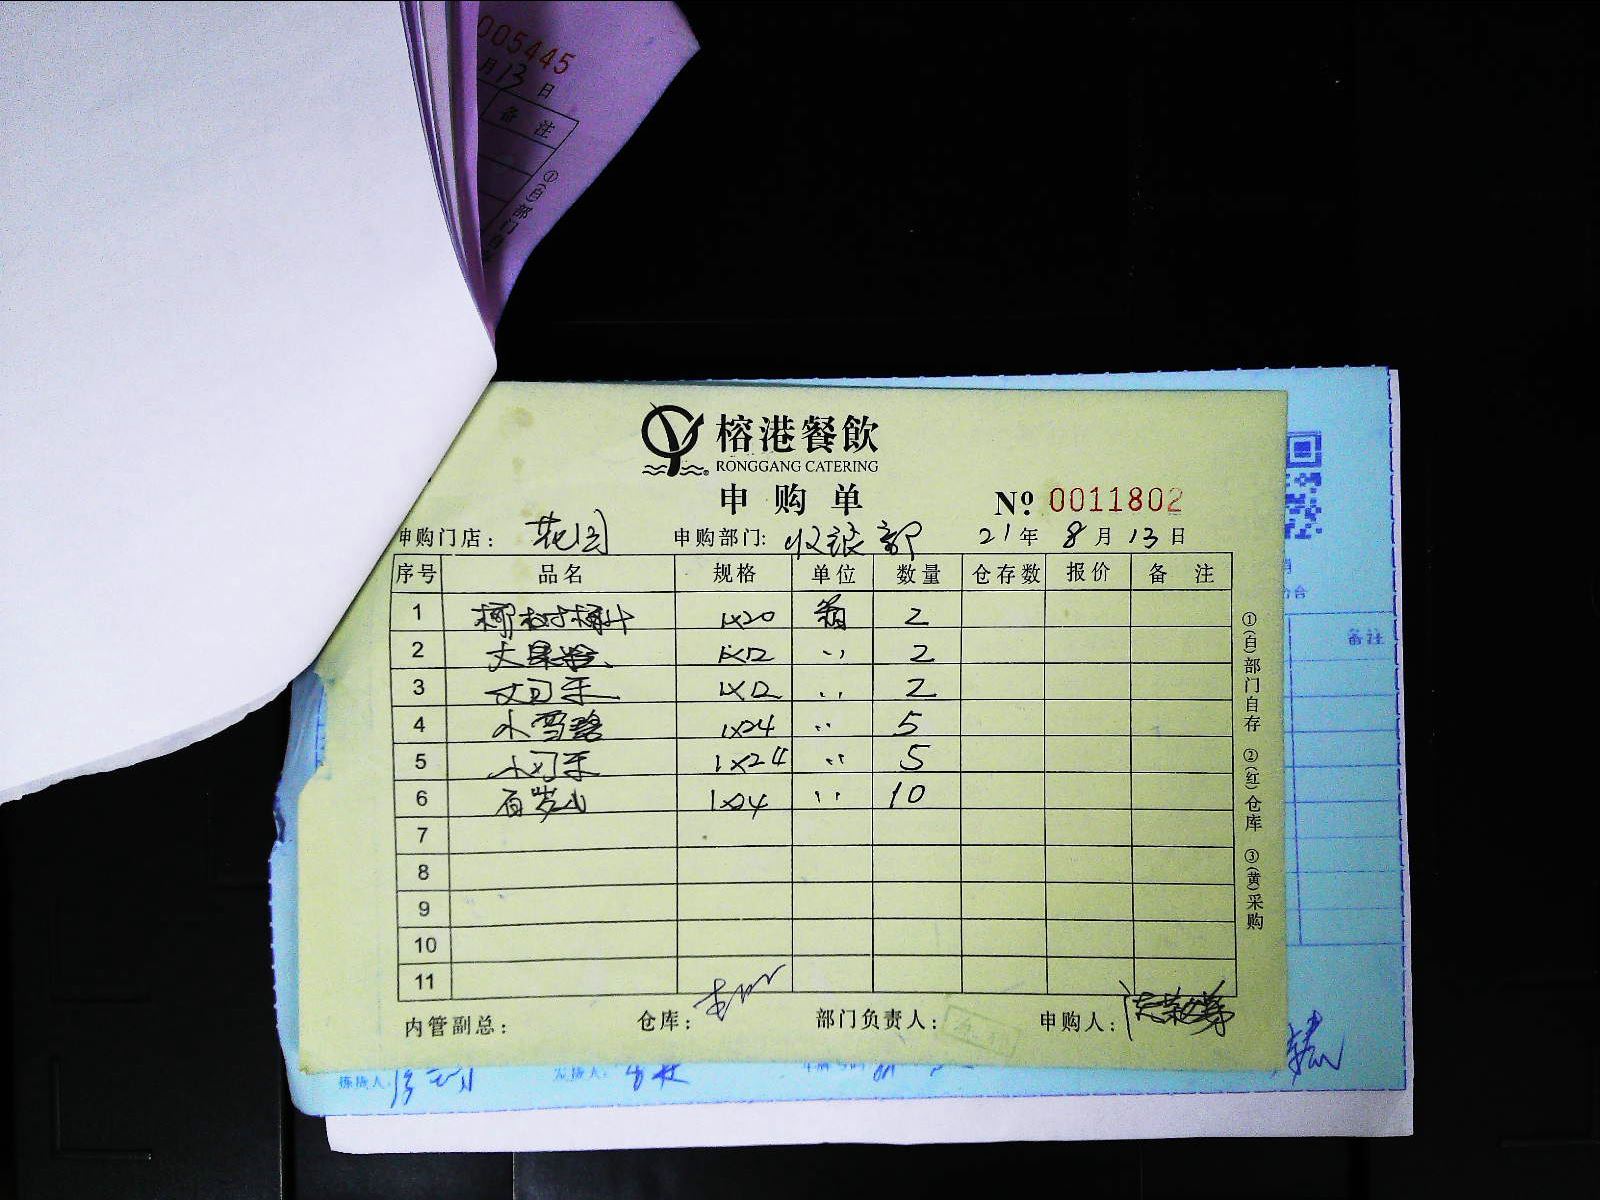 005445
月 13 日
备 注
①(自)部门自
榕港餐飲
RONGGANG CATERING
申购单
Nº 0011802
申购门店: 花园 申购部门: 收银部 21年 8月 13日
序号 品名 规格 单位 数量 仓存数 报价 备 注
1 椰树椰汁 1x20 箱 2
2 大果粒 1x12 〃 2
3 大可乐 1x12 〃 2
4 小雪碧 1x24 〃 5
5 小可乐 1x24 〃 5
6 百岁山 1x24 〃 10
7
8
9
10
11
内管副总: 仓库: 部门负责人: 申购人:
①(自)部门自存 ②(红)仓库 ③(黄)采购
备注
拣货人: 发货人: